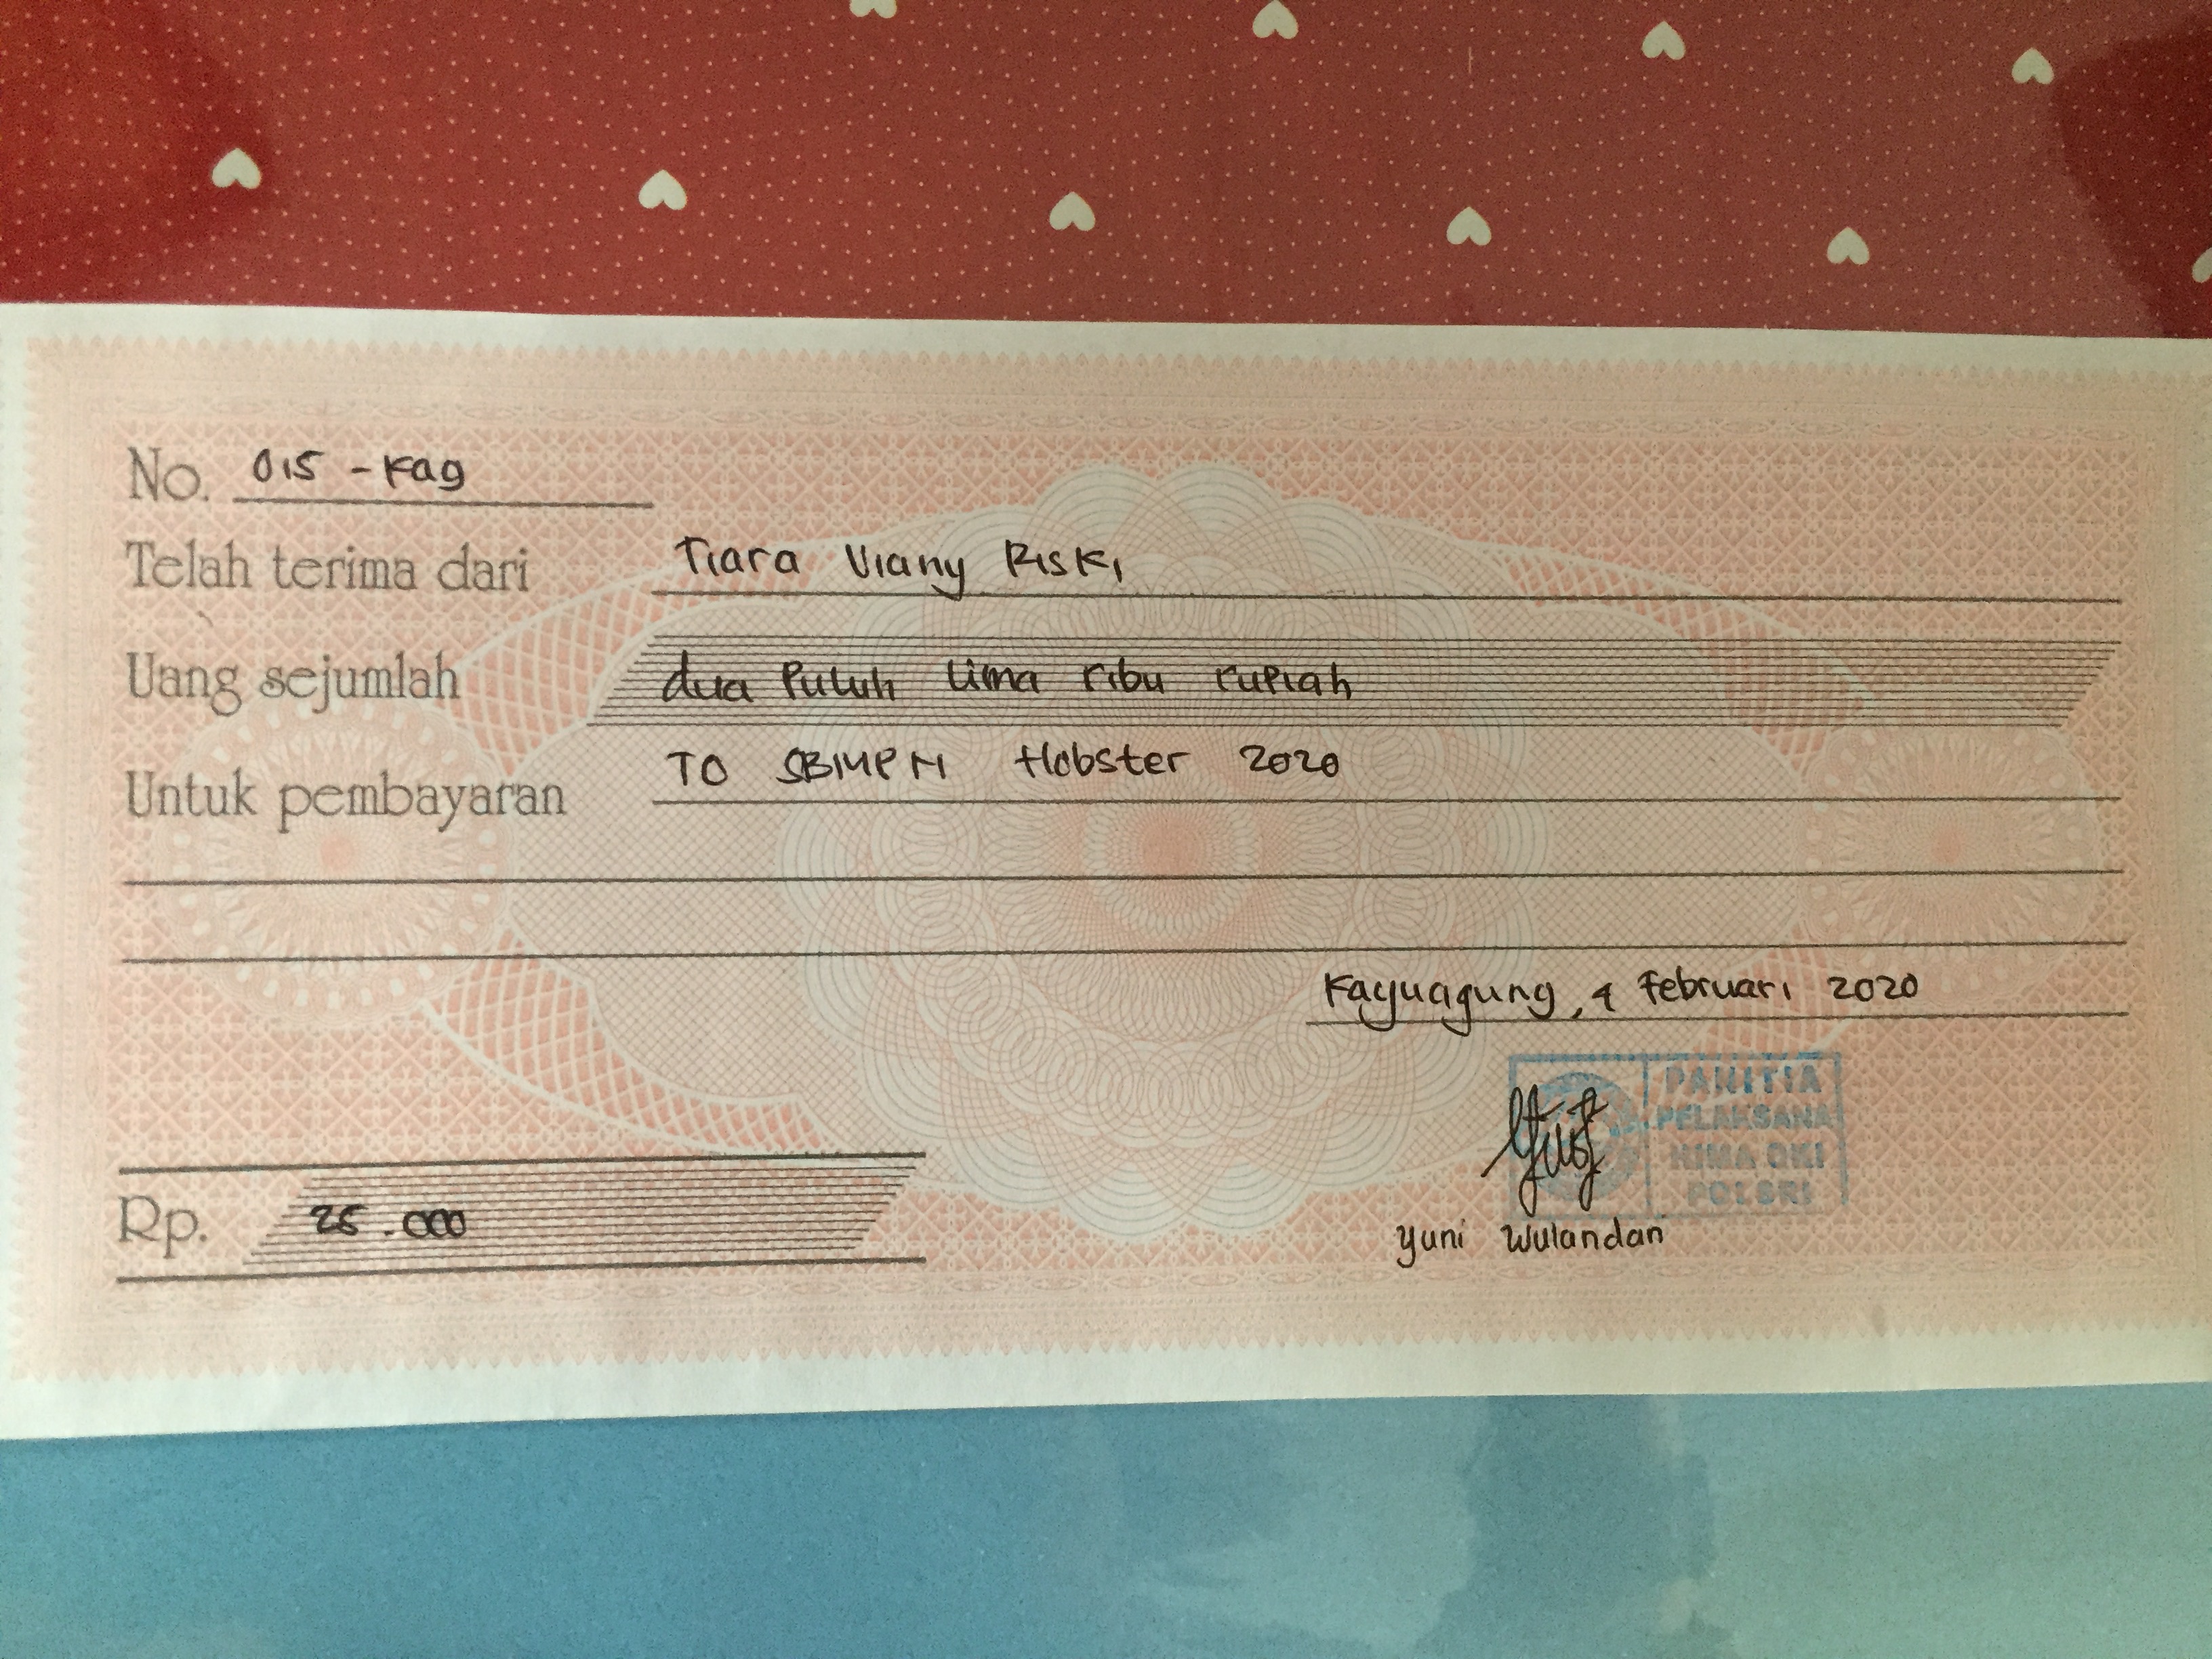 No. 015 - Kag
Telah terima dari Tiara Viany Riski
Uang sejumlah dua Puluh lima ribu rupiah
Untuk pembayaran TO SBMPN Hobster 2020
Kayuagung, 4 Februari 2020
Rp. 25.000
PANITIA
PELAKSANA
HIMA OKI
POLSRI
Yuni Wulandari